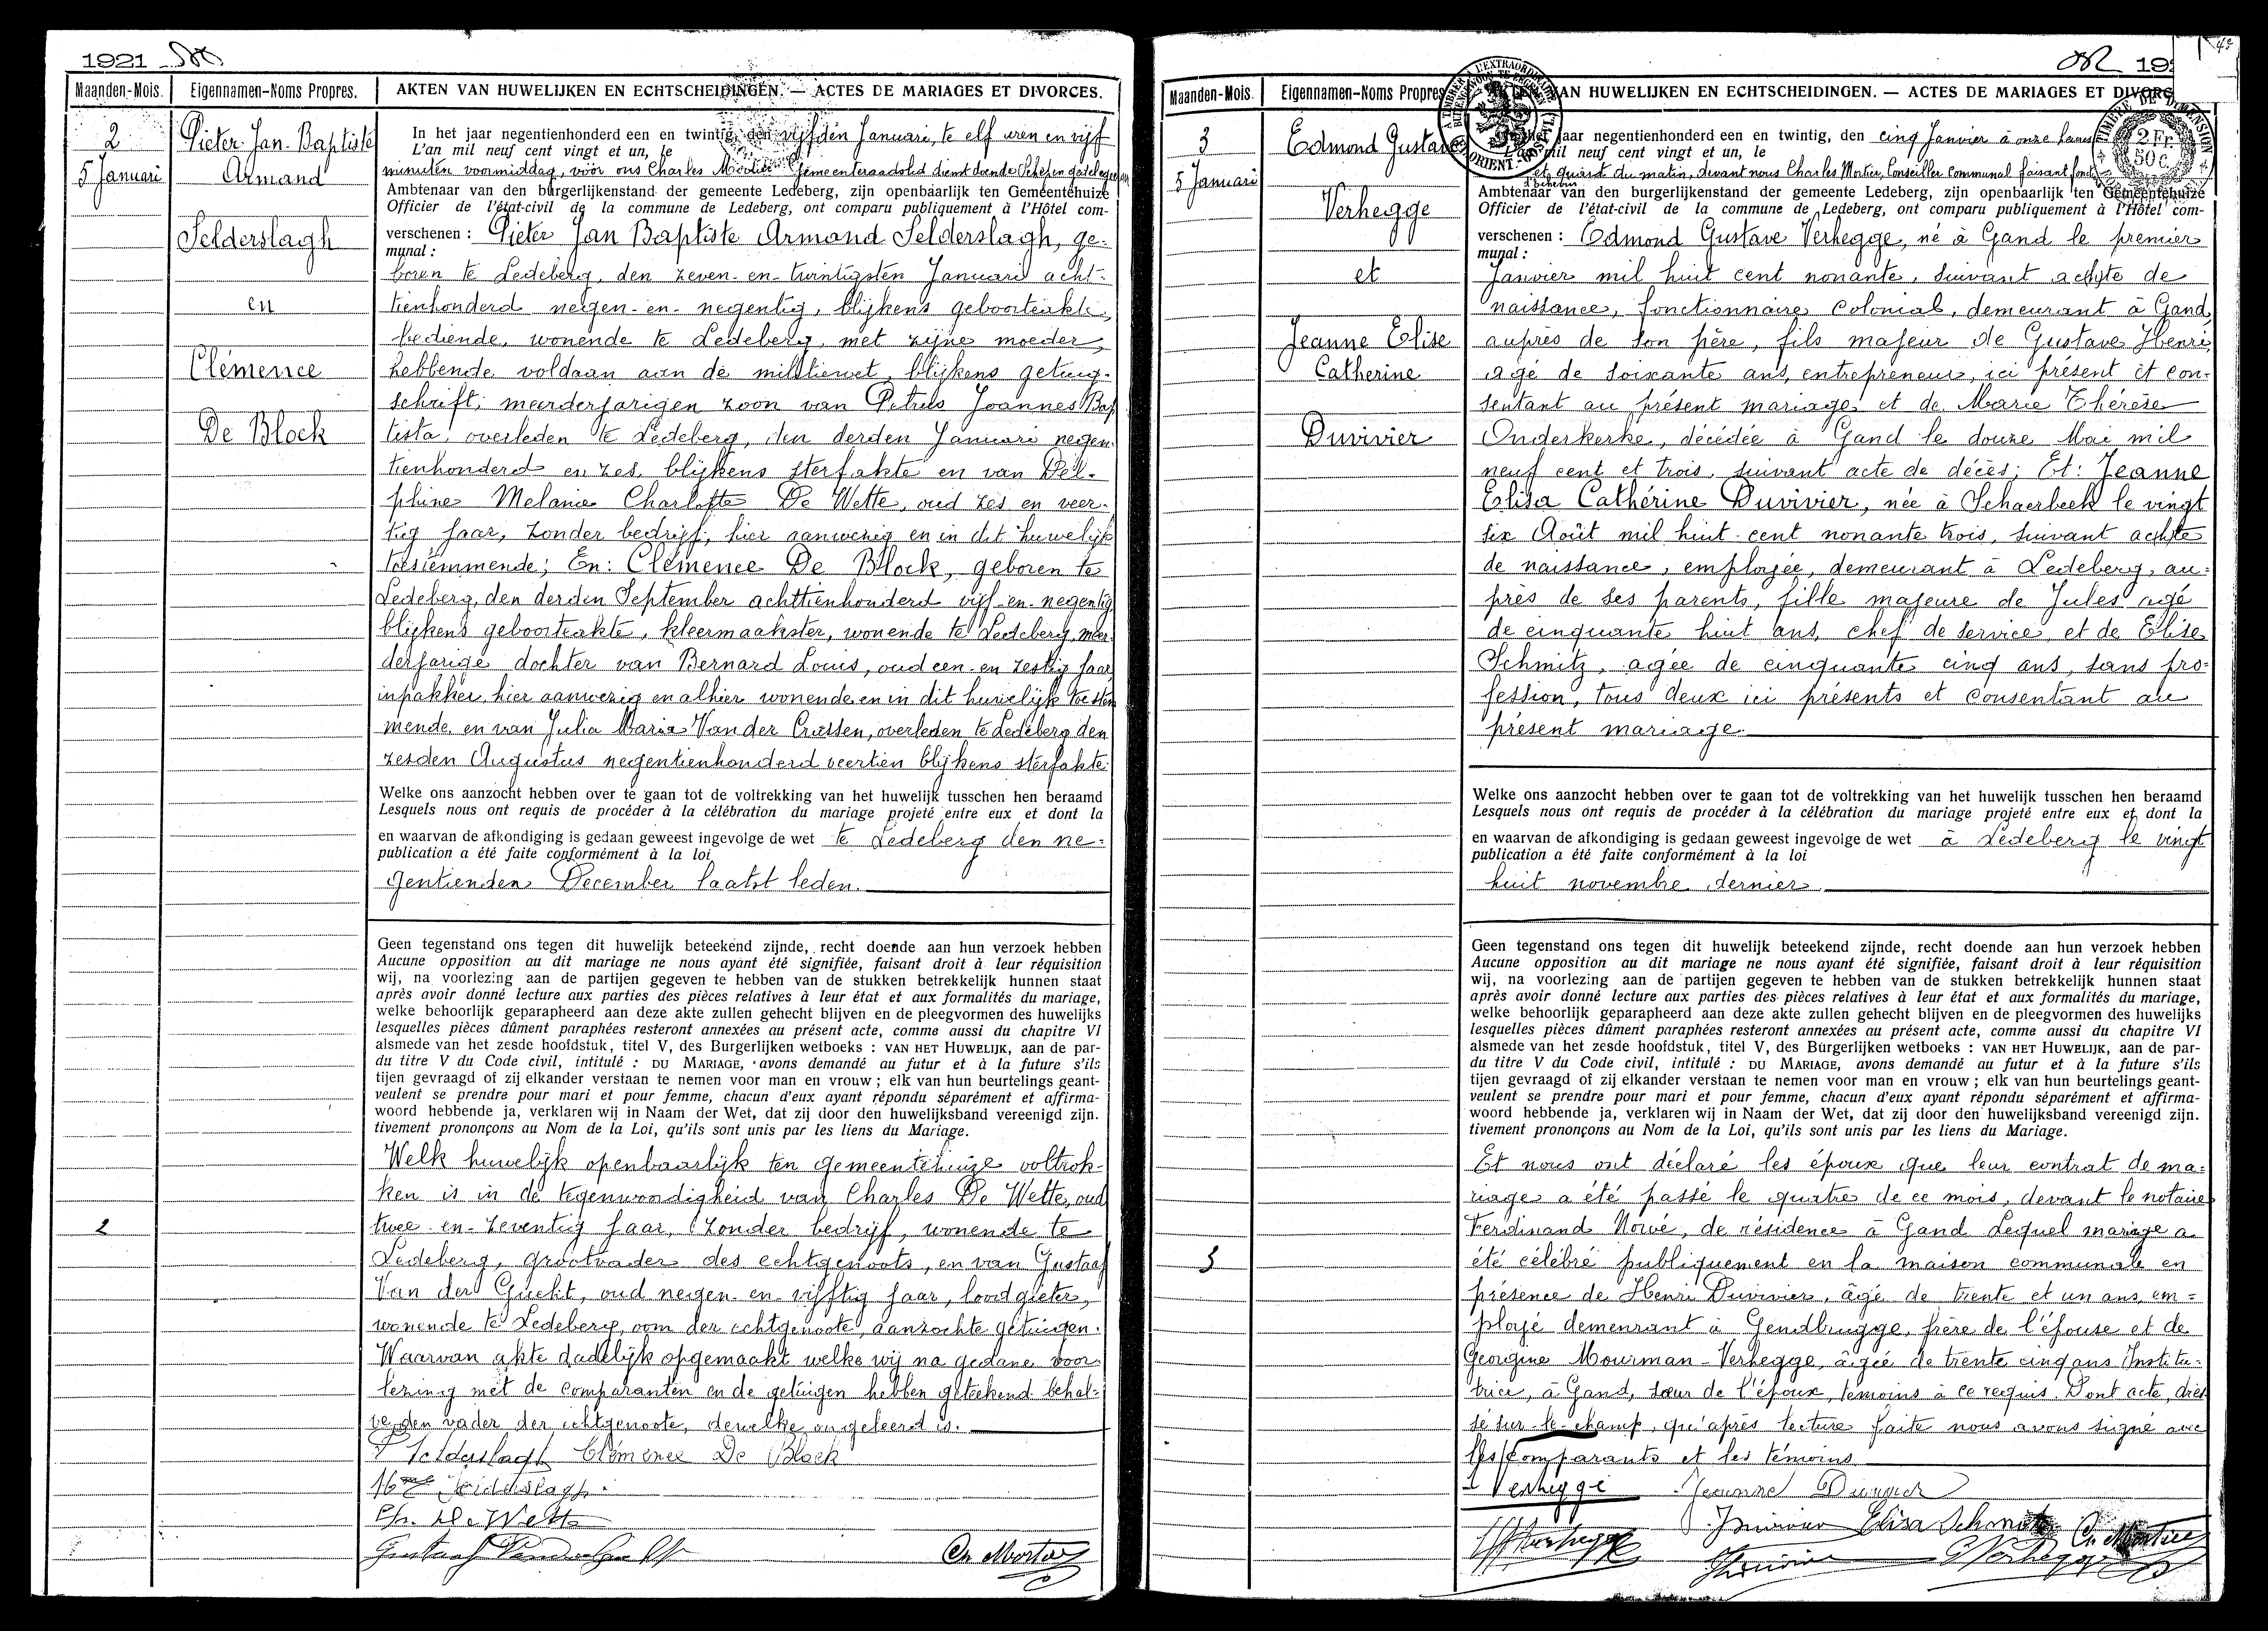 1921
Maanden-Mois. Eigennamen-Noms Propres. AKTEN VAN HUWELIJKEN EN ECHTSCHEIDINGEN. — ACTES DE MARIAGES ET DIVORCES.
2
5 Januari
Pieter Jan Baptiste
Armand
Selderslagh
en
Clémence
De Block
In het jaar negentienhonderd een en twintig, den vijfden Januari, te elf uren en vijf
L'an mil neuf cent vingt et un, le
minuten voormiddag, vóór ons Charles Mortier Gemeenteraadslid dienstdoende Schepen
Ambtenaar van den burgerlijkenstand der gemeente Ledeberg, zijn openbaarlijk ten Gemeentehuize
Officier de l'état-civil de la commune de Ledeberg, ont comparu publiquement à l'Hôtel com-
verschenen : Pieter Jan Baptiste Armand Selderslagh, ge-
munal :
boren te Ledeberg, den zeven-en-twintigsten Januari acht-
tienhonderd negen-en-negentig, blijkens geboorteakte,
bediende, wonende te Ledeberg, met zijne moeder,
hebbende voldaan aan de militiewet, blijkens getuig-
schrift; meerderjarigen zoon van Petrus Joannes Bap
tista, overleden te Ledeberg, den derden Januari negen-
tienhonderd en zes, blijkens sterfakte en van Del-
phine Melanie Charlotte De Wette, oud zes en veer-
tig jaar, zonder bedrijf, hier aanwezig en in dit huwelijk
toestemmende; En: Clémence De Block, geboren te
Ledeberg, den derden September achttienhonderd vijf-en-negentig
blijkens geboorteakte, kleermaakster, wonende te Ledeberg, meer
derjarige dochter van Bernard Louis, oud een-en-zestig jaar,
inpakker, hier aanwezig en alhier wonende en in dit huwelijk toestem
mende, en van Julia Maria Van der Crussen, overleden te Ledeberg den
zesden Augustus negentienhonderd veertien blijkens sterfakte.
Welke ons aanzocht hebben over te gaan tot de voltrekking van het huwelijk tusschen hen beraamd
Lesquels nous ont requis de procéder à la célébration du mariage projeté entre eux et dont la
en waarvan de afkondiging is gedaan geweest ingevolge de wet te Ledeberg den ne-
publication a été faite conformément à la loi
gentienden December laatst leden.
Geen tegenstand ons tegen dit huwelijk beteekend zijnde, recht doende aan hun verzoek hebben
Aucune opposition au dit mariage ne nous ayant été signifiée, faisant droit à leur réquisition
wij, na voorlezing aan de partijen gegeven te hebben van de stukken betrekkelijk hunnen staat
après avoir donné lecture aux parties des pièces relatives à leur état et aux formalités du mariage,
welke behoorlijk geparapheerd aan deze akte zullen gehecht blijven en de pleegvormen des huwelijks
lesquelles pièces dûment paraphées resteront annexées au présent acte, comme aussi du chapitre VI
alsmede van het zesde hoofdstuk, titel V, des Burgerlijken wetboeks : VAN HET HUWELIJK, aan de par-
du titre V du Code civil, intitulé : DU MARIAGE, avons demandé au futur et à la future s'ils
tijen gevraagd of zij elkander verstaan te nemen voor man en vrouw ; elk van hun beurtelings geant-
veulent se prendre pour mari et pour femme, chacun d'eux ayant répondu séparément et affirma-
woord hebbende ja, verklaren wij in Naam der Wet, dat zij door den huwelijksband vereenigd zijn.
tivement prononçons au Nom de la Loi, qu'ils sont unis par les liens du Mariage.
Welk huwelijk openbaarlijk ten gemeentehuize voltrok-
ken is in de tegenwoordigheid van Charles De Wette, oud
2
twee-en-zeventig jaar, zonder bedrijf, wonende te
Ledeberg, grootvader des echtgenoots, en van Gustaaf
Van der Gucht, oud negen-en-vijftig jaar, loodgieter,
wonende te Ledeberg, oom der echtgenoote, aanzochte getuigen.
Waarvan akte dadelijk opgemaakt welke wij na gedane voor-
lezing met de comparanten en de getuigen hebben geteekend behal-
ve den vader der echtgenoote, dewelke ongeleerd is.
Selderslagh Clémence De Block
Selderslagh
Ch. De Wette
Gustaaf Vanderguch
Ch Mortier
Maanden-Mois. Eigennamen-Noms Propres. AKTEN VAN HUWELIJKEN EN ECHTSCHEIDINGEN. — ACTES DE MARIAGES ET DIVORC
TIMBRE DE DIMENSION
2 Fr.
50 c.
3
5 Januari
Edmond Gustave
Verhegge
et
Jeanne Elise
Catherine
Duvivier
jaar negentienhonderd een en twintig, den cinq Janvier à onze heures
mil neuf cent vingt et un, le
et quart du matin, devant nous Charles Mortier, Conseiller Communal faisant fonct
d'échevin
Ambtenaar van den burgerlijkenstand der gemeente Ledeberg, zijn openbaarlijk ten Gemeentehuize
Officier de l'état-civil de la commune de Ledeberg, ont comparu publiquement à l'Hôtel com-
verschenen : Edmond Gustave Verhegge, né à Gand le premier
munal :
Janvier mil huit cent nonante, suivant acte de
naissance, fonctionnaire Colonial, demeurant à Gand,
auprès de son père, fils majeur de Gustave Henri,
agé de soixante ans, entrepreneur, ici présent et con-
sentant au présent mariage et de Marie Thérèse
Onderkerke, décédée à Gand le douze Mai mil
neuf cent et trois, suivant acte de décès; Et: Jeanne
Elisa Cathérine Duvivier, née à Schaerbeek le vingt
six Août mil huit cent nonante trois, suivant acte
de naissance, employée, demeurant à Ledeberg, au-
près de ses parents, fille majeure de Jules agé
de cinquante huit ans, chef de service, et de Elise
Schmitz, agée de cinquante cinq ans, sans pro-
fession, tous deux ici présents et consentant au
présent mariage.
Welke ons aanzocht hebben over te gaan tot de voltrekking van het huwelijk tusschen hen beraamd
Lesquels nous ont requis de procéder à la célébration du mariage projeté entre eux et dont la
en waarvan de afkondiging is gedaan geweest ingevolge de wet à Ledeberg le vingt
publication a été faite conformément à la loi
huit novembre dernier.
Geen tegenstand ons tegen dit huwelijk beteekend zijnde, recht doende aan hun verzoek hebben
Aucune opposition au dit mariage ne nous ayant été signifiée, faisant droit à leur réquisition
wij, na voorlezing aan de partijen gegeven te hebben van de stukken betrekkelijk hunnen staat
après avoir donné lecture aux parties des pièces relatives à leur état et aux formalités du mariage,
welke behoorlijk geparapheerd aan deze akte zullen gehecht blijven en de pleegvormen des huwelijks
lesquelles pièces dûment paraphées resteront annexées au présent acte, comme aussi du chapitre VI
alsmede van het zesde hoofdstuk, titel V, des Burgerlijken wetboeks : VAN HET HUWELIJK, aan de par-
du titre V du Code civil, intitulé : DU MARIAGE, avons demandé au futur et à la future s'ils
tijen gevraagd of zij elkander verstaan te nemen voor man en vrouw ; elk van hun beurtelings geant-
veulent se prendre pour mari et pour femme, chacun d'eux ayant répondu séparément et affirma-
woord hebbende ja, verklaren wij in Naam der Wet, dat zij door den huwelijksband vereenigd zijn.
tivement prononçons au Nom de la Loi, qu'ils sont unis par les liens du Mariage.
Et nous ont déclaré les époux que leur contrat de ma-
riage a été passé le quatre de ce mois, devant le notaire
Ferdinand Nowé, de résidence à Gand Lequel mariage a
3
été célébré publiquement en la maison communale en
présence de Henri Duvivier, âgé de trente et un ans, em-
ployé demeurant à Gendbrugge, frère de l'épouse et de
Georgine Mourman-Verhegge, âgée de trente cinq ans Institu-
trice, à Gand, sœur de l'époux, témoins à ce requis. Dont acte, dres
sé sur-le-champ, qu'après lecture faite nous avons signé avec
les comparants et les témoins
Verhegge Jeanne Duvivier
Duvivier Elisa Schmitz Ch Mortier
Verhegge Duvivier G Verhegge